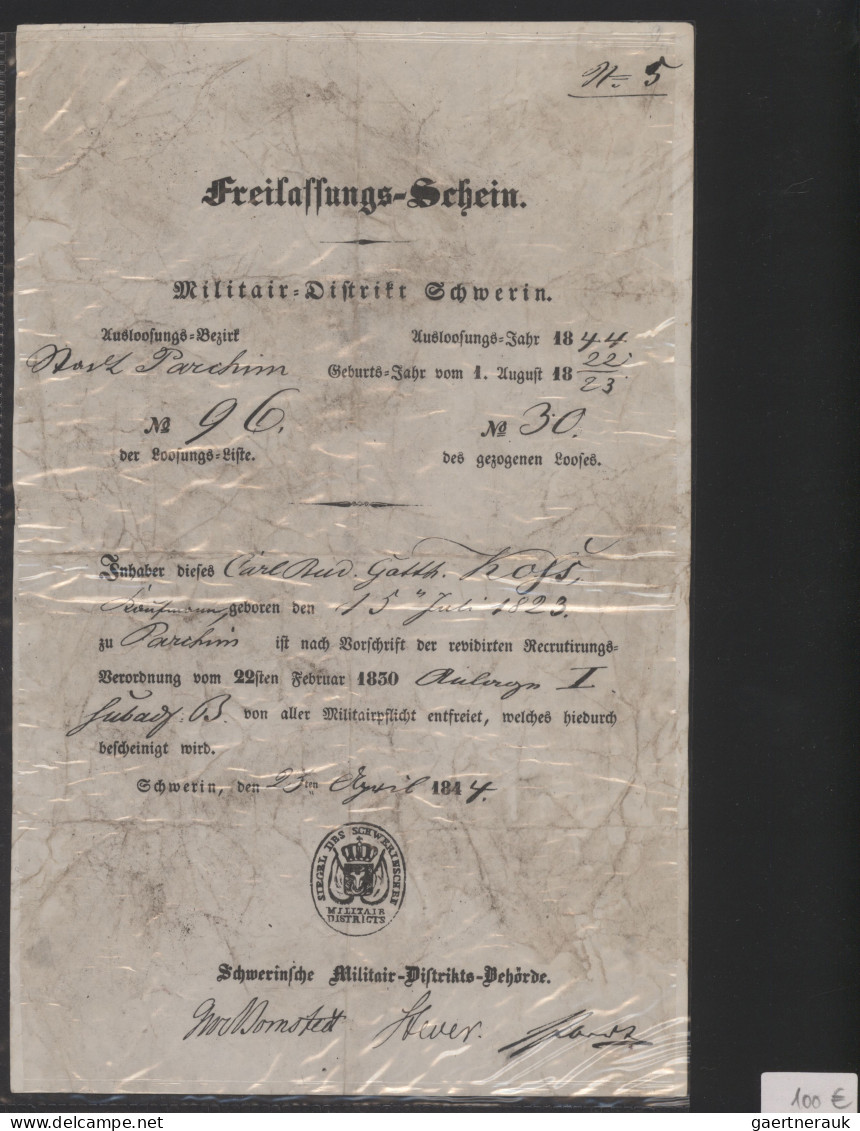 № 5
Freilassungs-Schein.
Militair-Distrikt Schwerin.
Ausloosungs-Bezirk
Ausloosungs-Jahr 1844
Stadt Parchim
Geburts-Jahr vom 1. August 18 22/23
№ 96.
№ 30.
der Loosungs-Liste.
des gezogenen Looses.
Inhaber dieses Carl Rud. Gotth. Koss,
Kaufmann, geboren den 15" Juli 1823.
zu Parchim ist nach Vorschrift der revidirten Recrutirungs-
Verordnung vom 22sten Februar 1830 Anlage I.
B. von aller Militairpflicht entfreiet, welches hiedurch
bescheinigt wird.
Schwerin, den 23ten April 1844.
SIEGEL DES SCHWERINSCHEN
MILITAIR
DISTRICTS
Schwerinsche Militair-Distrikts-Behörde.
Bornstedt Stever.
100 €
gaertnerauk